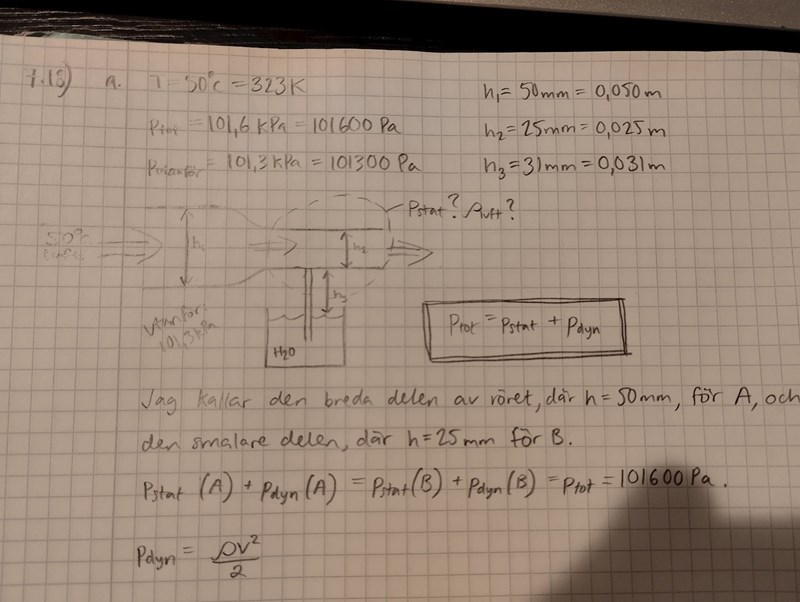 1.15) a. T = 50°C = 323K
h₁ = 50mm = 0,050m
Ptot = 101,6 kPa = 101600 Pa
h₂ = 25mm = 0,025m
Putanför = 101,3 kPa = 101300 Pa
h₃ = 31mm = 0,031m
Pstat? ρluft?
50°C
h₁
h₂
h₃
Utanför:
101,3kPa
H₂O
Ptot = Pstat + Pdyn
Jag kallar den breda delen av röret, där h = 50mm, för A, och
den smalare delen, där h = 25mm för B.
Pstat (A) + Pdyn (A) = Pstat (B) + Pdyn (B) = Ptot = 101600 Pa.
Pdyn = ρv²/2